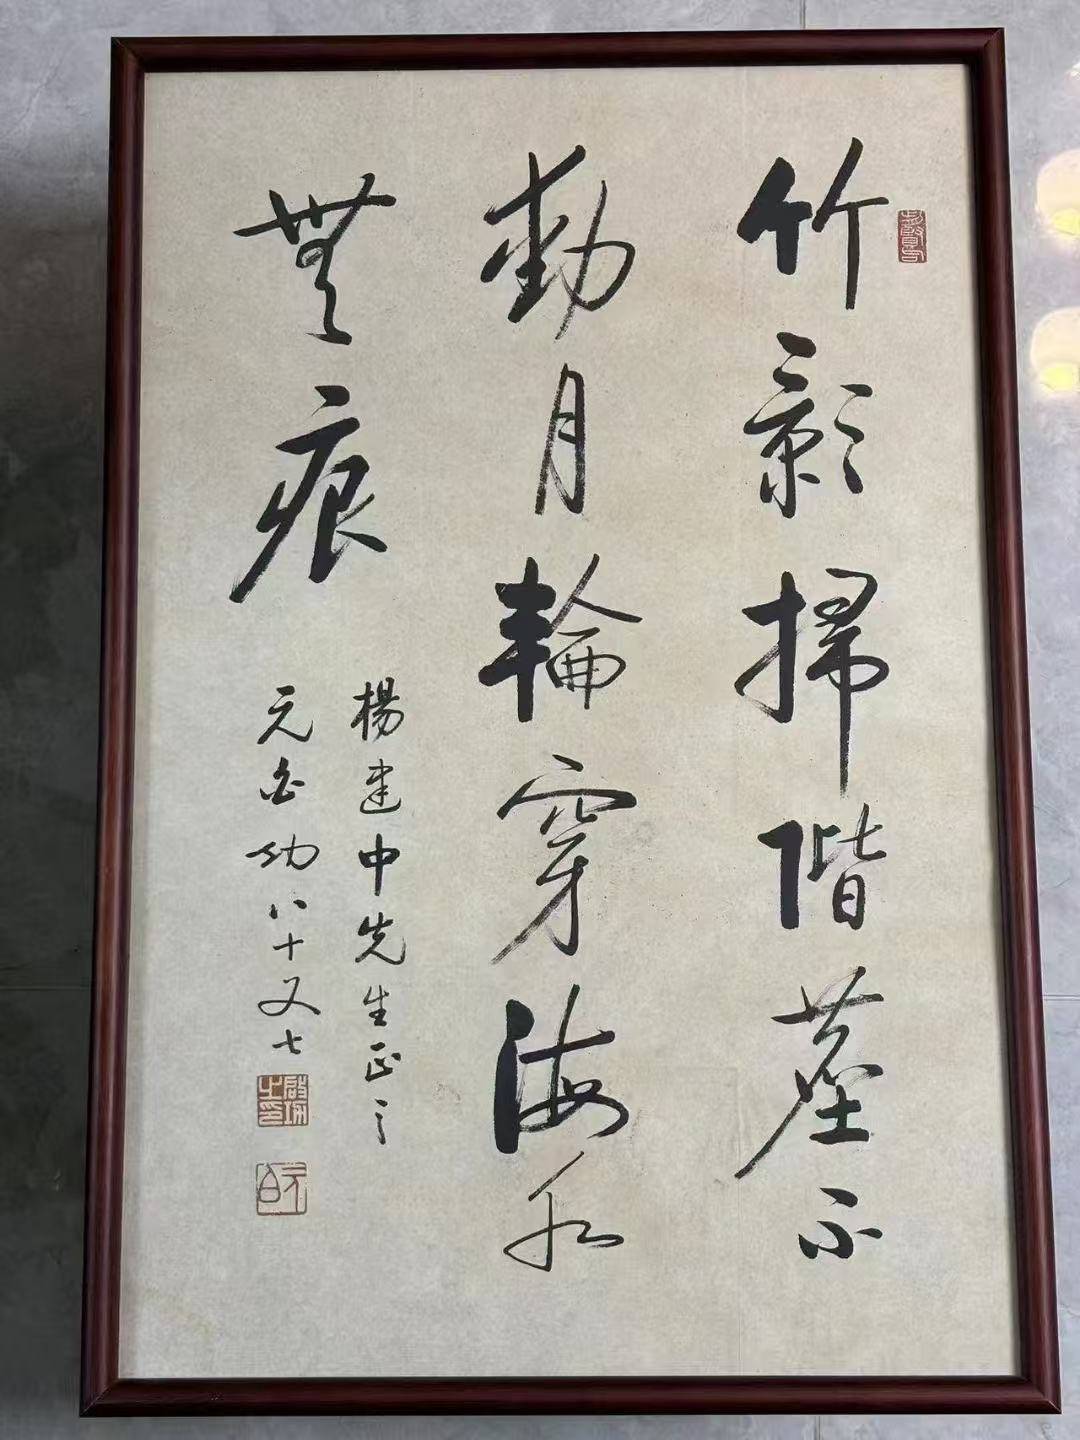 竹影掃階塵不
動月輪穿海水
無痕
楊建中先生正之
元白功八十又七
啟功之印
元白